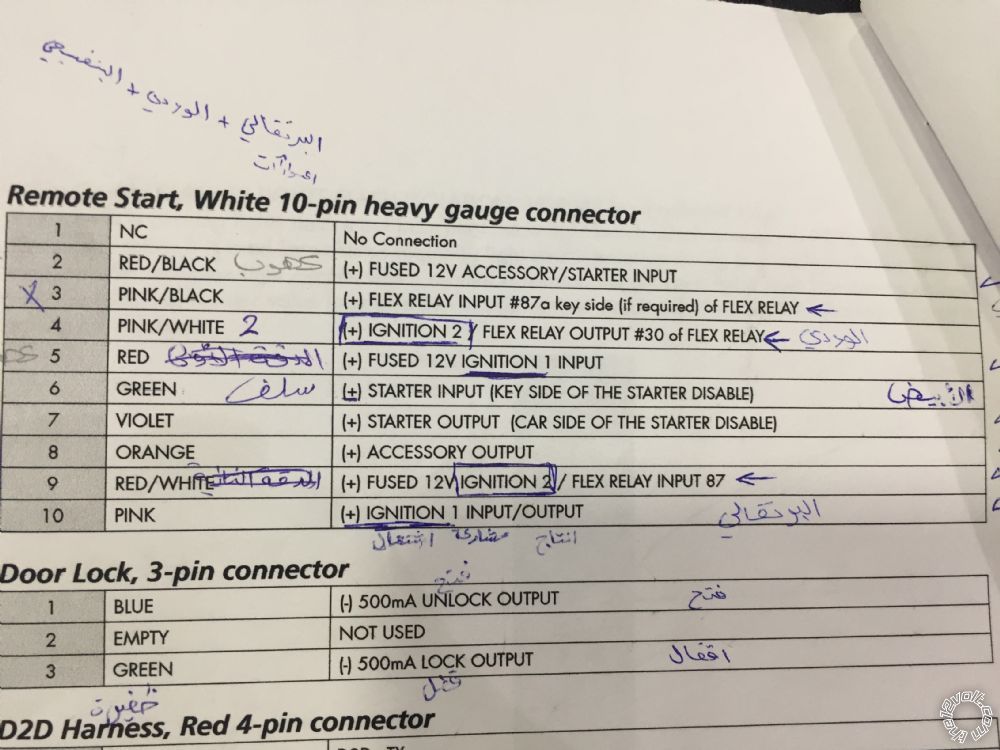 البرتقالي + الوردي + البنفسجي
Remote Start, White 10-pin heavy gauge connector
1 NC No Connection
2 RED/BLACK كهوب (+) FUSED 12V ACCESSORY/STARTER INPUT
X 3 PINK/BLACK (+) FLEX RELAY INPUT #87a key side (if required) of FLEX RELAY ←
4 PINK/WHITE 2 (+) IGNITION 2 / FLEX RELAY OUTPUT #30 of FLEX RELAY ← الوردي
5 RED (+) FUSED 12V IGNITION 1 INPUT
6 GREEN سلف (+) STARTER INPUT (KEY SIDE OF THE STARTER DISABLE) الأبيض
7 VIOLET (+) STARTER OUTPUT (CAR SIDE OF THE STARTER DISABLE)
8 ORANGE (+) ACCESSORY OUTPUT
9 RED/WHITE (+) FUSED 12V IGNITION 2 / FLEX RELAY INPUT 87 ←
10 PINK (+) IGNITION 1 INPUT/OUTPUT البرتقالي
انتاج مشاركة اشتعال
Door Lock, 3-pin connector
فتح
1 BLUE (-) 500mA UNLOCK OUTPUT فتح
2 EMPTY NOT USED
3 GREEN (-) 500mA LOCK OUTPUT اقفال
ظفيرة قفل
D2D Harness, Red 4-pin connector
the12volt.com